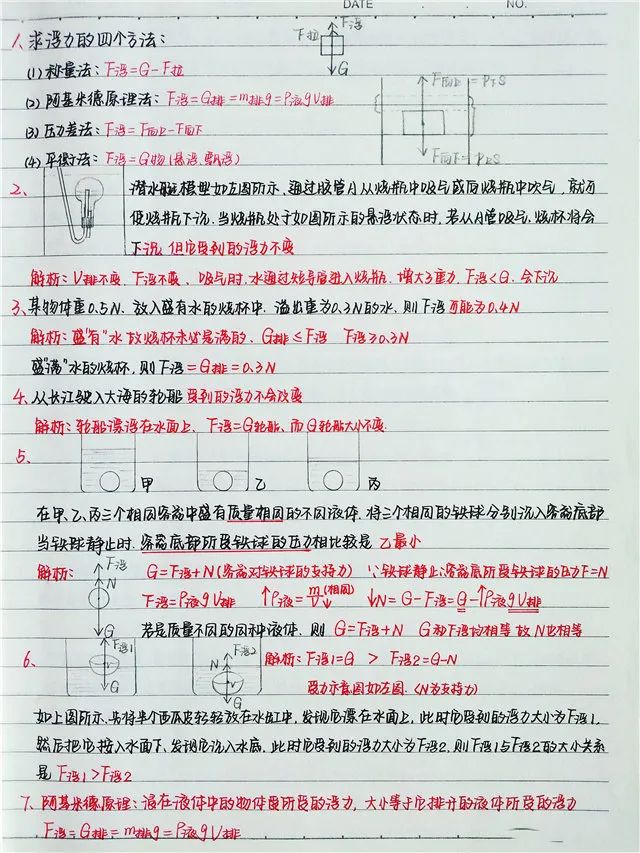 DATE . . NO.
1、求浮力的四个方法：
F浮
F拉
G
(1) 称量法：F浮=G-F拉
(2) 阿基米德原理法：F浮=G排=m排g=ρ液gV排
F向上=P下S
(3) 压力差法：F浮=F向上-F向下
(4) 平衡法：F浮=G物(悬浮、飘浮)
F向下=P上S
2、潜水艇模型如左图所示、通过胶管A从烧瓶中吸气或向烧瓶中吹气，就可
使烧瓶下沉.当烧瓶处于如图所示的悬浮状态时.若从A管吸气、烧杯将会
下沉.但它受到的浮力不变
解析：V排不变、F浮不变、吸气时.水通过短导管进入烧瓶.增大了重力.F浮<G.会下沉
3、某物体重0.5N、放入盛有水的烧杯中.溢出重为0.3N的水、则F浮可能为0.4N
解析：盛"有"水故烧杯未必是满的、G排≤F浮 F浮≥0.3N
盛"满"水的烧杯，则F浮=G排=0.3N
4、从长江驶入大海的轮船受到的浮力不会改变
解析：轮船漂浮在水面上、F浮=G轮船、而G轮船大小不变.
5、
甲 乙 丙
在甲、乙、丙三个相同容器中盛有质量相同的不同液体.将三个相同的铁球分别沉入容器底部
当铁球静止时.容器底部所受铁球的压力相比较是 乙最小
解析：
F浮
N
G
G=F浮+N(容器对铁球的支持力) ∵铁球静止∴容器底所受铁球的压力F=N
F浮=ρ液gV排 ↑ρ液=m(相同)/V↓ ↓N=G-F浮=G-↑ρ液gV排
若是质量不同的同种液体.则 G=F浮+N G和F浮均相等故N也相等
6、
F浮1
G
N F浮2
G
解析：F浮1=G > F浮2=G-N
受力示意图如左图.(N为支持力)
如上图所示、先将半个西瓜皮轻轻放在水缸中，发现它漂在水面上，此时它受到的浮力大小为F浮1.
然后把它按入水面下、发现它沉入水底.此时它受到的浮力大小为F浮2.则F浮1与F浮2的大小关系
是 F浮1>F浮2
7、阿基米德原理：浸在液体中的物体受所受的浮力，大小等于它排开的液体所受的浮力
F浮=G排=m排g=ρ液gV排